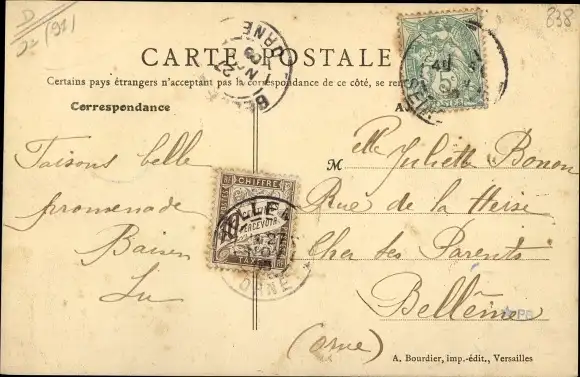 D
(91)
838
CARTE POSTALE
Certains pays étrangers n'acceptant pas la correspondance de ce côté, se
Correspondance
Faisons belle
promenade
Baisers
Lu
CHIFFRE
PERCEVOIR
5c
POSTES
ORNE
Melle Juliette
Rue de la Herse
Chez ses Parents
Bellême
(Orne)
A. Bourdier, imp.-édit., Versailles